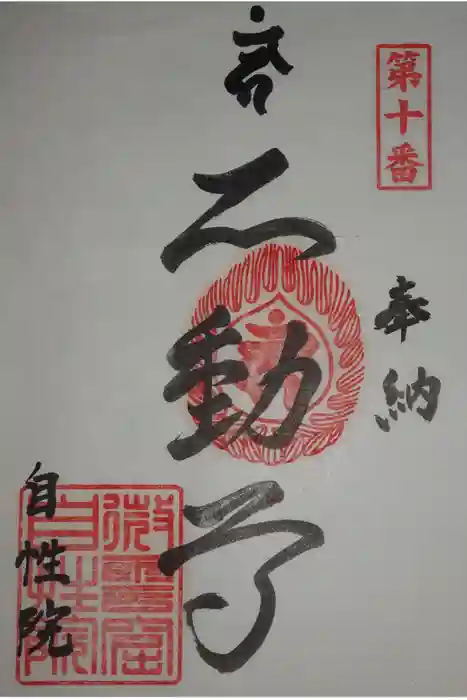 第十番
奉納
不動尊
自性院